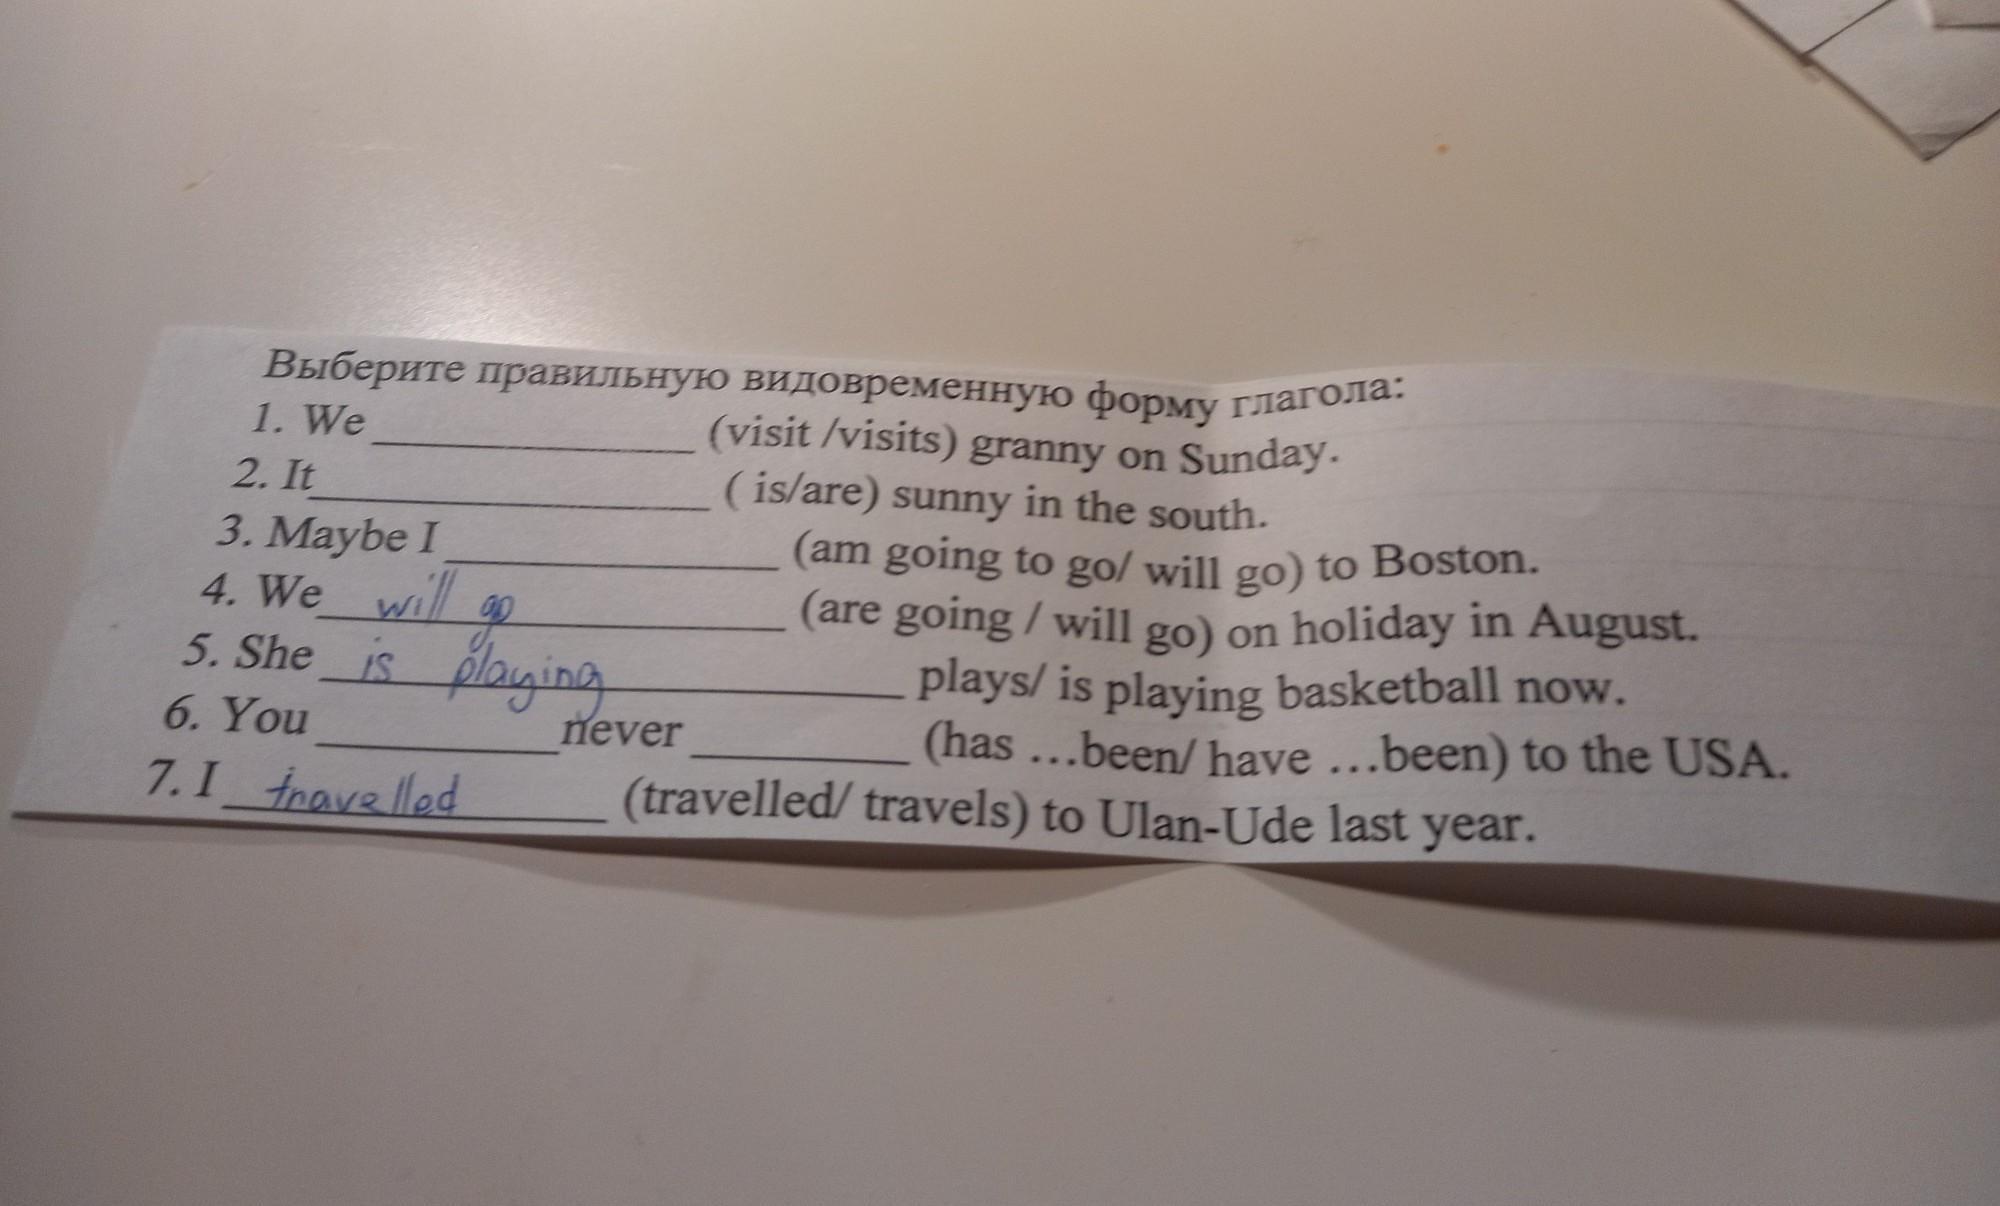 Выберите правильную видовременную форму глагола:
1. We ____________ (visit /visits) granny on Sunday.
2. It______________ ( is/are) sunny in the south.
3. Maybe I ____________ (am going to go/ will go) to Boston.
4. We__will go__________ (are going / will go) on holiday in August.
5. She __is playing____________ plays/ is playing basketball now.
6. You _________never ________ (has ...been/ have ...been) to the USA.
7. I __travelled______ (travelled/ travels) to Ulan-Ude last year.